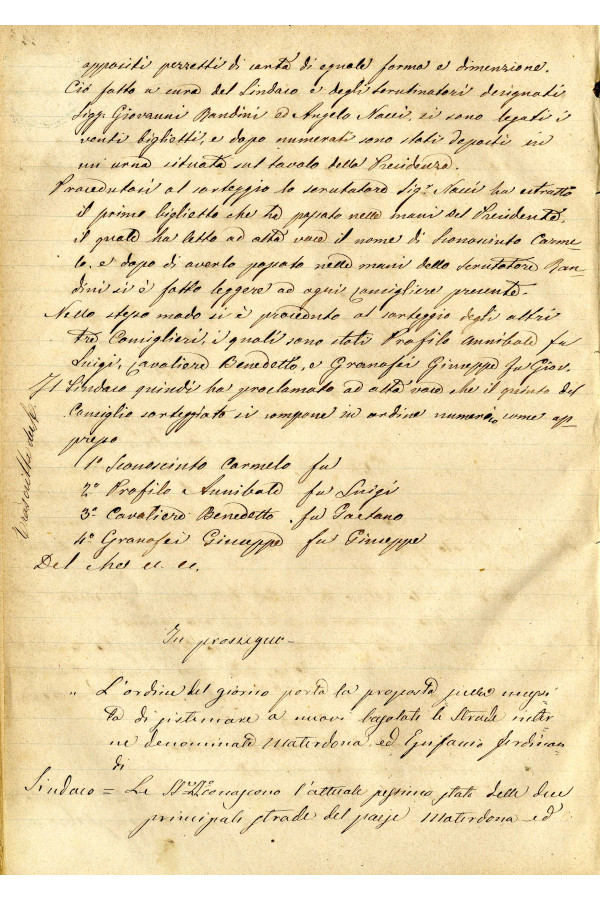 appositi pezzetti di carta di eguale forma e dimenzione.
Ciò fatto a cura del Sindaco e degli scrutinatori designati
Sigg: Giovanni Bandini ed Angelo Nacci, si sono legati i
venti biglietti, e dopo numerati sono stati deposti in
un urna situata sul tavolo della Presidenza.
Procedutosi al sorteggio lo scrutatore Sigr Nacci ha estratto
il primo biglietto che ha passato nelle mani del Presidente,
il quale ha letto ad alta voce il nome di Sconoscinto Carme-
lo, e dopo di averlo passato nelle mani dello Scrutatore Ban-
dini si è fatto leggere ad ogni consigliere presente.
Nello stesso modo si è proceduto al sorteggio degli altri
tre Consiglieri, i quali sono stati Profilo Annibale fu
Luigi, Cavaliere Benedetto, e Granafei Giuseppe fu Giov.
Il Sindaco quindi ha proclamato ad alta voce che il quinto del
Consiglio sorteggiato si compone in ordine numerico come ap-
presso
1º Sconoscinto Carmelo fu
2º Profilo Annibale fu Luigi
3º Cavaliere Benedetto fu Gaetano
4º Granafei Giuseppe fu Giuseppe
Del che
In prosieguo
" L'ordine del giorno porta la proposta sulla
di sistemare a nuovi basolati le Strade inter
ne denominate Materdona ed Epifanio Ferdinan-
di
Sindaco = Le conoscono l'attuale pessimo stato delle due
principali strade del paese Materdona ed